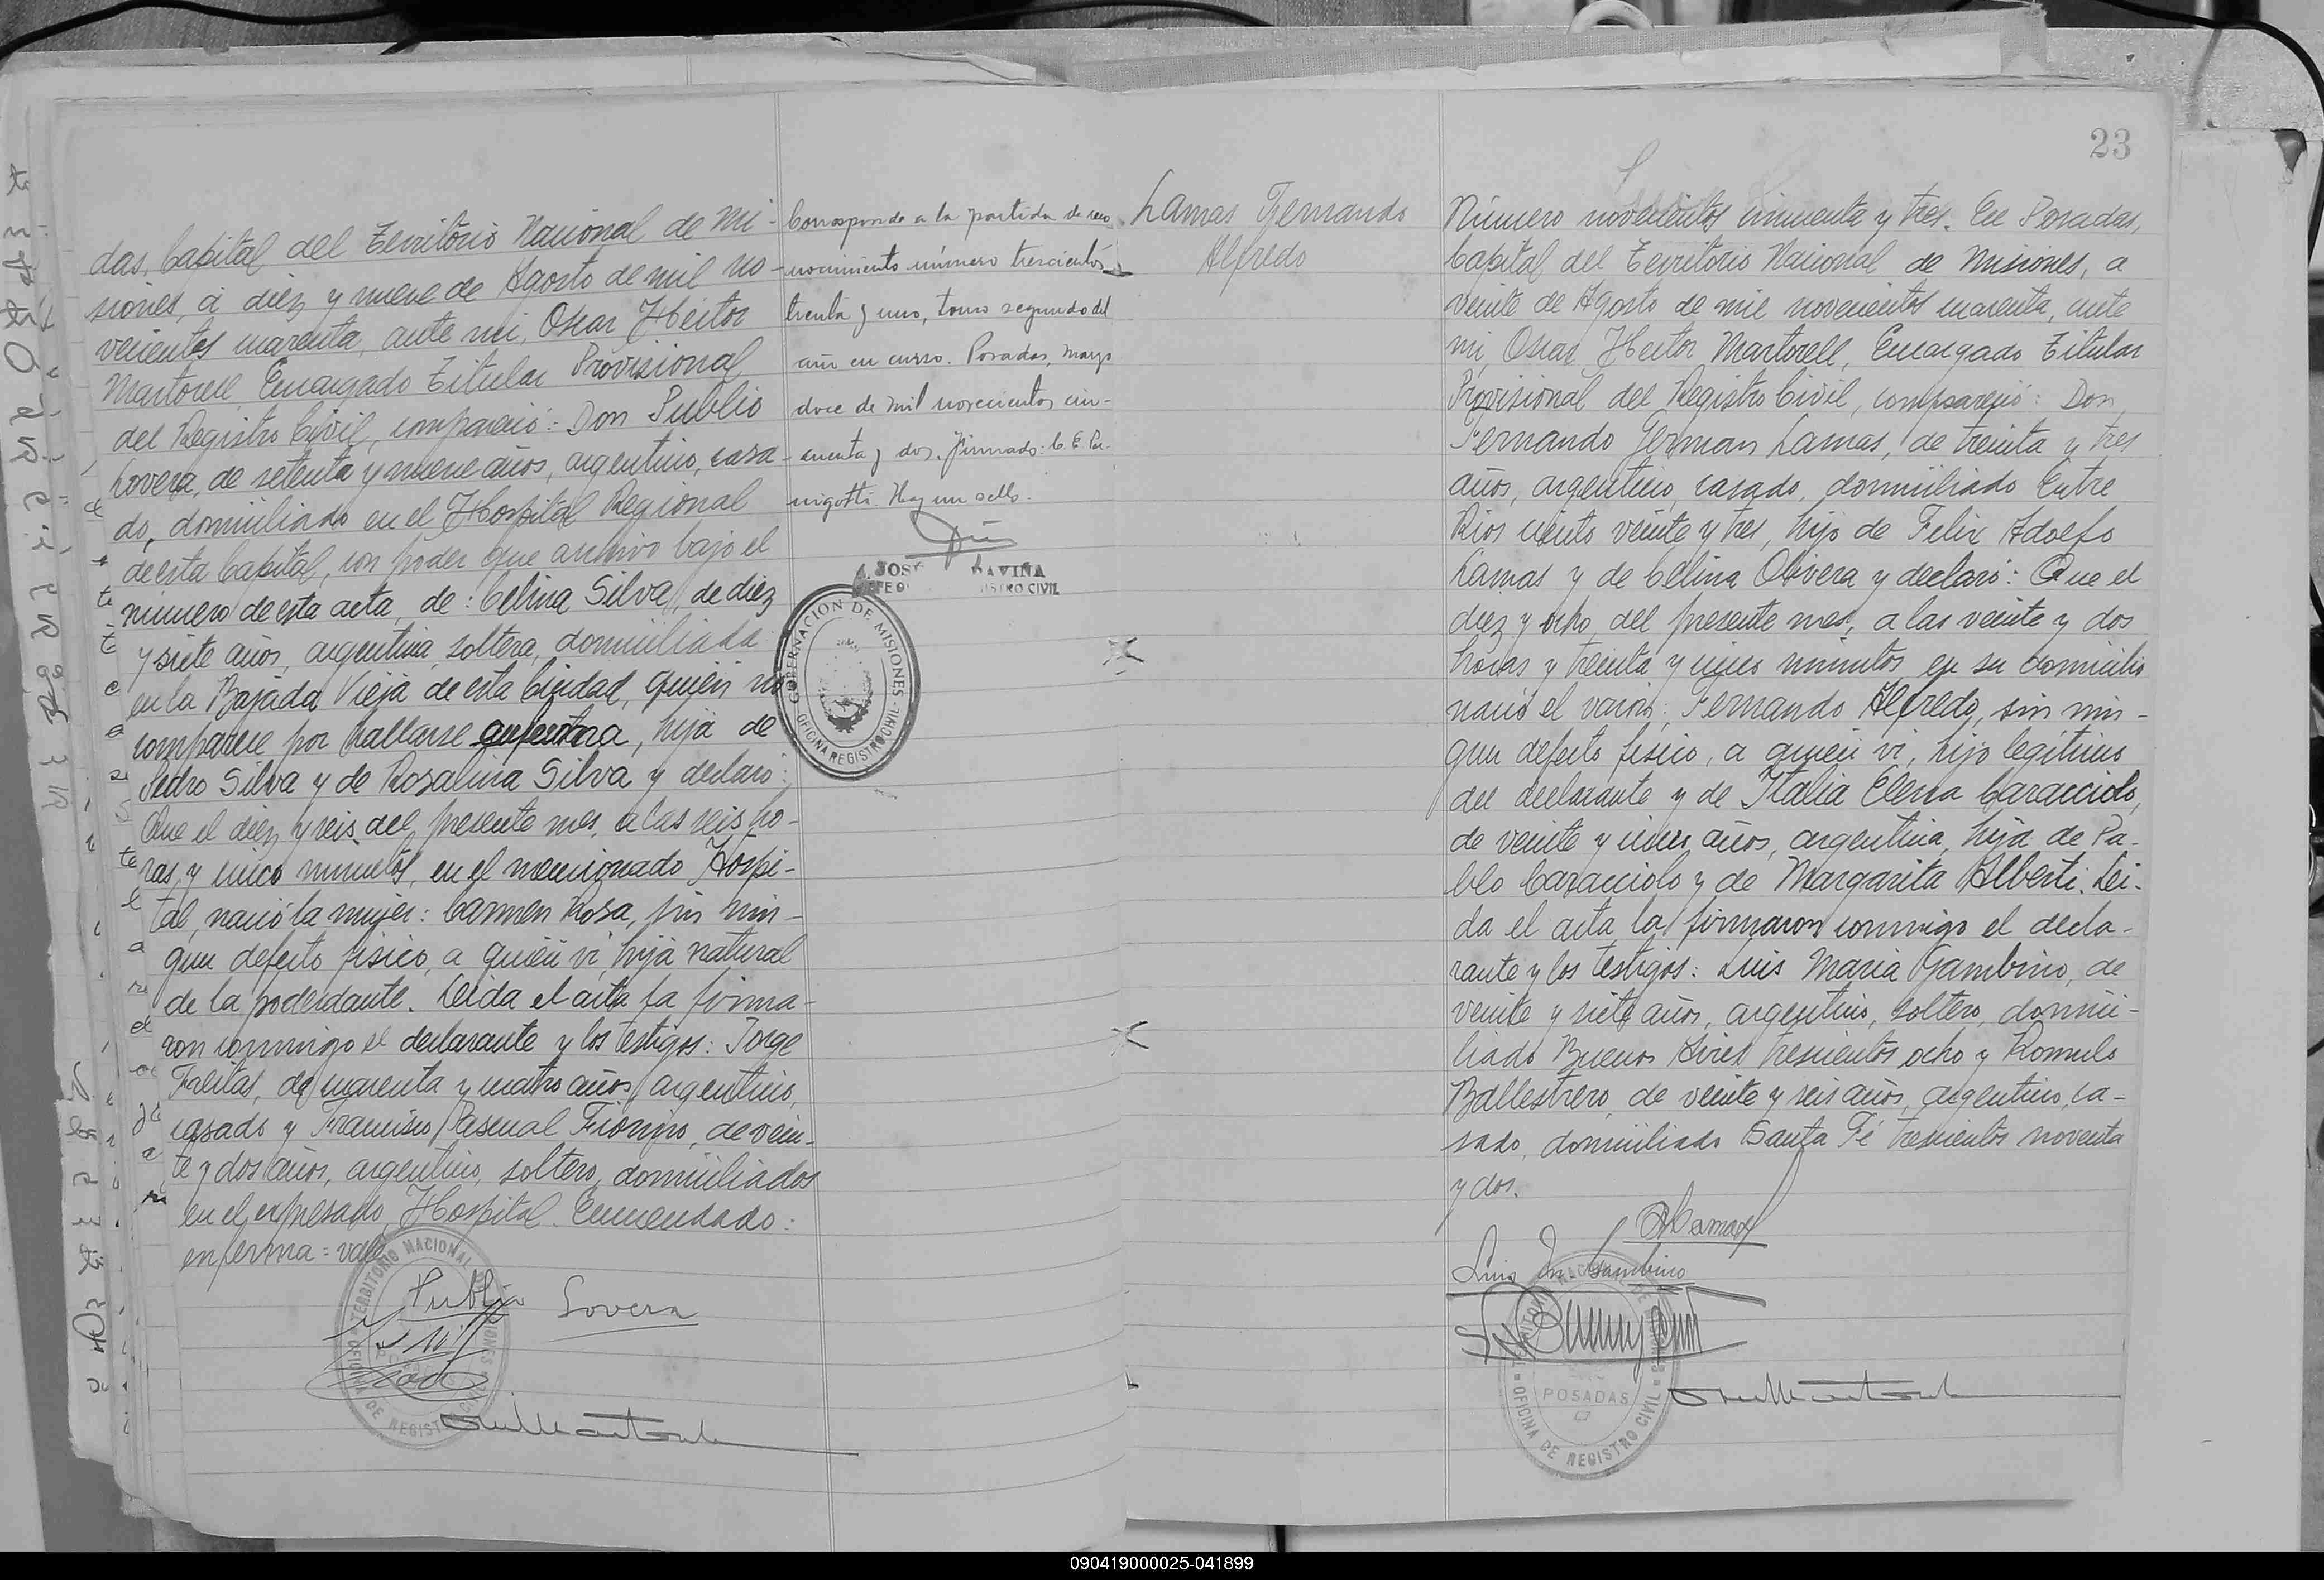 das, Capital del Territorio Nacional de Mi-
siones, a diez y nueve de Agosto de mil no-
vecientos cuarenta, ante mi, Oscar Hector
Martorell, Encargado Titular Provisional
del Registro Civil, compareció: Don Publio
Lovera, de setenta y nueve años, argentino, casa-
do, domiciliado en el Hospital Regional
de esta Capital, con poder que archivo bajo el
número de esta acta, de: Celina Silva, de diez
y siete años, argentina, soltera, domiciliada
en la Bajada Vieja de esta Ciudad, quién no
comparece por hallarse enferma, hija de
Pedro Silva y de Rosalina Silva y declaró:
Que el diez y seis del presente mes, a las seis ho-
ras y cinco minutos, en el mencionado Hospi-
tal, nació la mujer: Carmen Rosa, sin nin-
gun defecto fisico, a quién vi, hija natural
de la poderdante. Leida el acta la firma-
ron conmigo el declarante y los testigos: Jorge
Freitas, de cuarenta y cuatro años, argentino,
casado y Francisco Pascual Fiorino, de vein-
te y dos años, argentino, soltero, domiciliados
en el expresado Hospital. Enmendado:
enferma = vale
Publio Lovera
TERRITORIO NACIONAL DE MISIONES
OFICINA DE REGISTRO CIVIL
Corresponde a la partida de reco-
nocimiento número trescientos
treinta y uno, tomo segundo del
año en curso. Posadas, mayo
doce de mil novecientos cin-
cuenta y dos. Firmado: C. E. Pa-
nigatti. Hay un sello.
GOBERNACION DE MISIONES
OFICINA REGISTRO CIVIL
23
Lamas Fernando
Alfredo
Número novecientos cincuenta y tres. En Posadas,
Capital del Territorio Nacional de Misiones, a
veinte de Agosto de mil novecientos cuarenta, ante
mi, Oscar Hector Martorell, Encargado Titular
Provisional del Registro Civil, compareció: Don
Fernando German Lamas, de treinta y tres
años, argentino, casado, domiciliado Entre
Rios ciento veinte y tres, hijo de Felix Adolfo
Lamas y de Celina Olivera y declaró: Que el
diez y ocho del presente mes, a las veinte y dos
horas y treinta y cinco minutos en su domicilio
nació el varón: Fernando Alfredo, sin nin-
gun defecto fisico, a quién vi, hijo legitimo
del declarante y de Italia Elena Caracciolo,
de veinte y cinco años, argentina, hija de Pa-
blo Caracciolo y de Margarita Alberti. Lei-
da el acta la firmaron conmigo el decla-
rante y los testigos: Luis Maria Gambino, de
veinte y siete años, argentino, soltero, domici-
liado Buenos Aires trescientos ocho y Romulo
Ballestrero, de veinte y seis años, argentino, ca-
sado, domiciliado Santa Fé trescientos noventa
y dos.
Luis M. Gambino
POSADAS
OFICINA DE REGISTRO CIVIL
090419000025-041899